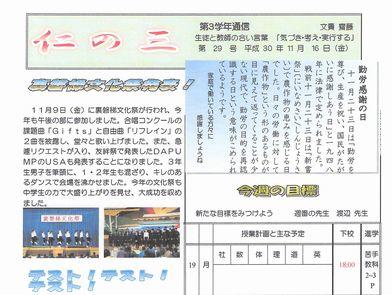 第3学年通信
文責 齋藤
生徒と教師の合い言葉 「気づき・考え・実行する」
第 29 号 平成 30 年 11 月 16 日(金)
仁の三
裏磐梯文化祭発表!
11月9日(金)に裏磐梯文化祭が行われ、今
年も午後の部に参加しました。合唱コンクールの
課題曲「Gifts」と自由曲「リフレイン」の
2曲を披露し、堂々と歌い上げました。また、急
遽リクエストが入り、友絆祭で発表したDAPU
MPのUSAも発表することになりました。3年
生男子を筆頭に、1・2年生も混ざり、キレのあ
るダンスで会場を沸かせました。今年の文化祭も
中学生の力で大盛り上がりを見せ、大成功を収め
ました。
裏磐梯文化祭
テスト!テスト!
テスト!
勤労感謝の日
十一月二十三日は「勤労を
尊び、生産を祝い、国民がた
がいに感謝しあう日」と一九四八
年に法律で定められました。
戦前は十一月二十三日は「新嘗
祭(にいなめさい)でしょう」
で農作物の恵みを感じる日
でした。日々の労働に対して
「農作物」という形のあるもの
が目に見えて返ってくるわけでは
ない現代で、勤労の目的を再認
識する日という意味がこめられ
家庭で働いている方々に
感謝しましょうね
今週の目標
新たな目標をみつけよう 週番の先生 渡辺 先生
授業計画と主な予定 下校 進学
19 月 社 数 体 理 道 英 18:00 苦手
教科
2-3
P